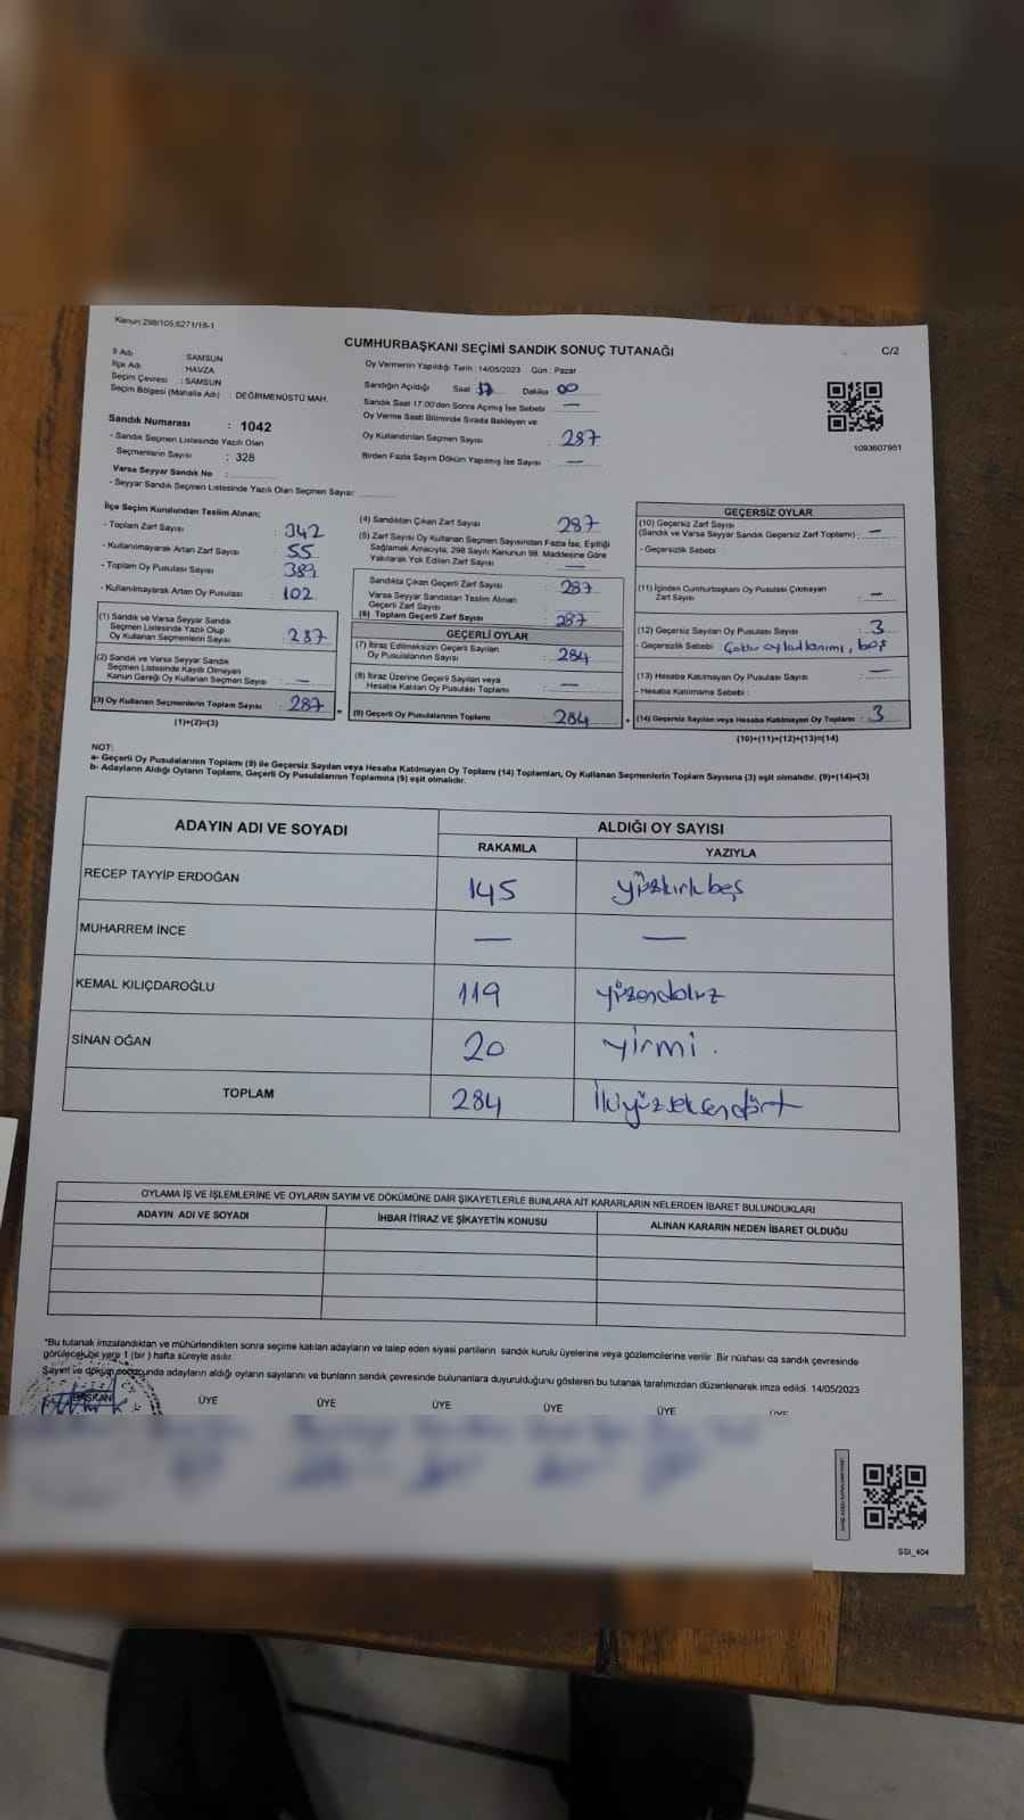 Kanun:298/105,6271/18-1
CUMHURBAŞKANI SEÇİMİ SANDIK SONUÇ TUTANAĞI
C/2
İl Adı : SAMSUN
İlçe Adı : HAVZA
Seçim Çevresi : SAMSUN
Seçim Bölgesi (Mahalle Adı) : DEĞİRMENÜSTÜ MAH.
Oy Vermenin Yapıldığı Tarih : 14/05/2023 Gün : Pazar
Sandığın Açıldığı Saat 17 Dakika 00
Sandık Saat 17:00'den Sonra Açılmış İse Sebebi —
Oy Verme Saati Bitiminde Sırada Bekleyen ve
Oy Kullandırılan Seçmen Sayısı : 287
Birden Fazla Sayım Döküm Yapılmış İse Sayısı —
1093607951
Sandık Numarası : 1042
- Sandık Seçmen Listesinde Yazılı Olan
Seçmenlerin Sayısı : 328
Varsa Seyyar Sandık No :
- Seyyar Sandık Seçmen Listesinde Yazılı Olan Seçmen Sayısı:
İlçe Seçim Kurulundan Teslim Alınan;
- Toplam Zarf Sayısı : 342
- Kullanılmayarak Artan Zarf Sayısı : 55
- Toplam Oy Pusulası Sayısı : 389
- Kullanılmayarak Artan Oy Pusulası : 102
(1) Sandık ve Varsa Seyyar Sandık
Seçmen Listesinde Yazılı Olup
Oy Kullanan Seçmenlerin Sayısı : 287
(2) Sandık ve Varsa Seyyar Sandık
Seçmen Listesinde Kayıtlı Olmayan
Kanun Gereği Oy Kullanan Seçmen Sayısı —
(3) Oy Kullanan Seçmenlerin Toplam Sayısı : 287
(1)+(2)=(3)
(4) Sandıktan Çıkan Zarf Sayısı : 287
(5) Zarf Sayısı Oy Kullanan Seçmen Sayısından Fazla İse, Eşitliği
Sağlamak Amacıyla, 298 Sayılı Kanunun 98. Maddesine Göre
Yakılarak Yok Edilen Zarf Sayısı —
Sandıkta Çıkan Geçerli Zarf Sayısı : 287
Varsa Seyyar Sandıktan Teslim Alınan
Geçerli Zarf Sayısı
(6) Toplam Geçerli Zarf Sayısı : 287
GEÇERLİ OYLAR
(7) İtiraz Edilmeksizin Geçerli Sayılan
Oy Pusulalarının Sayısı : 284
(8) İtiraz Üzerine Geçerli Sayılan veya
Hesaba Katılan Oy Pusulası Toplamı : —
(9) Geçerli Oy Pusulalarının Toplamı 284
GEÇERSİZ OYLAR
(10) Geçersiz Zarf Sayısı
(Sandık ve Varsa Seyyar Sandık Geçersiz Zarf Toplamı) : —
- Geçersizlik Sebebi
(11) İçinden Cumhurbaşkanı Oy Pusulası Çıkmayan
Zarf Sayısı —
(12) Geçersiz Sayılan Oy Pusulası Sayısı : 3
- Geçersizlik Sebebi : boş
(13) Hesaba Katılmayan Oy Pusulası Sayısı : —
- Hesaba Katılmama Sebebi :
(14) Geçersiz Sayılan veya Hesaba Katılmayan Oy Toplamı : 3
(10)+(11)+(12)+(13)=(14)
NOT:
a- Geçerli Oy Pusulalarının Toplamı (9) ile Geçersiz Sayılan veya Hesaba Katılmayan Oy Toplamı (14) Toplamları, Oy Kullanan Seçmenlerin Toplam Sayısına (3) eşit olmalıdır. (9)+(14)=(3)
b- Adayların Aldığı Oyların Toplamı, Geçerli Oy Pusulalarının Toplamına (9) eşit olmalıdır.
ADAYIN ADI VE SOYADI ALDIĞI OY SAYISI
RAKAMLA YAZIYLA
RECEP TAYYİP ERDOĞAN 145 yüzkırkbeş
MUHARREM İNCE — —
KEMAL KILIÇDAROĞLU 119 yüzondokuz
SİNAN OĞAN 20 yirmi.
TOPLAM 284 İkiyüzseksendört
OYLAMA İŞ VE İŞLEMLERİNE VE OYLARIN SAYIM VE DÖKÜMÜNE DAİR ŞİKAYETLERLE BUNLARA AİT KARARLARIN NELERDEN İBARET BULUNDUKLARI
ADAYIN ADI VE SOYADI İHBAR İTİRAZ VE ŞİKAYETİN KONUSU ALINAN KARARIN NEDEN İBARET OLDUĞU
*Bu tutanak imzalandıktan ve mühürlendikten sonra seçime katılan adayların ve talep eden siyasi partilerin sandık kurulu üyelerine veya gözlemcilerine verilir. Bir nüshası da sandık çevresinde
görülecek bir yere 1 (bir) hafta süreyle asılır.
Sayım ve döküm sonucunda adayların aldığı oyların sayılarını ve bunların sandık çevresinde bulunanlara duyurulduğunu gösteren bu tutanak tarafımızdan düzenlenerek imza edildi. 14/05/2023
BAŞKAN ÜYE ÜYE ÜYE ÜYE ÜYE ÜYE
SSI_404